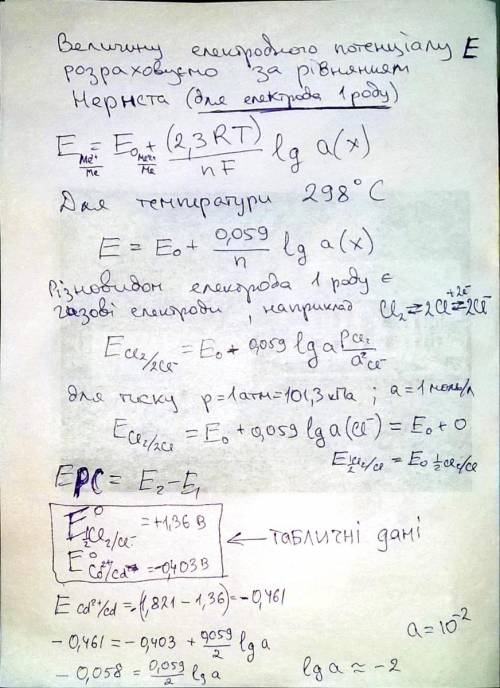 Величину електродного потенціалу E
розраховуємо за рівнянням
Нернста (для електрода 1 роду)
E Me²⁺/Me = E₀ Me²⁺/Me + (2,3RT)/nF lg a(x)
Для температури 298°C
E = E₀ + 0,059/n lg a(x)
Різновидом електрода 1 роду є
газові електроди, наприклад Cl₂ ⇄ 2Cl ⇄ 2Cl⁻ +2e⁻
E Cl₂/2Cl⁻ = E₀ + 0,059 lg a P Cl₂/a² Cl⁻
для тиску p=1атм=101,3 кПа; a=1 моль/л
E Cl₂/2Cl = E₀ + 0,059 lg a(Cl⁻) = E₀ + 0
E ½Cl₂/Cl = E₀ ½Cl₂/Cl
EPC = E₂ – E₁
E⁰ ½Cl₂/Cl⁻ = +1,36 В
E⁰ Cd²⁺/Cd = –0,403 В
← табличні дані
E Cd²⁺/Cd = –(1,821 – 1,36) = –0,461
–0,461 = –0,403 + 0,059/2 lg a
a = 10⁻²
–0,058 = 0,059/2 lg a
lg a ≈ –2